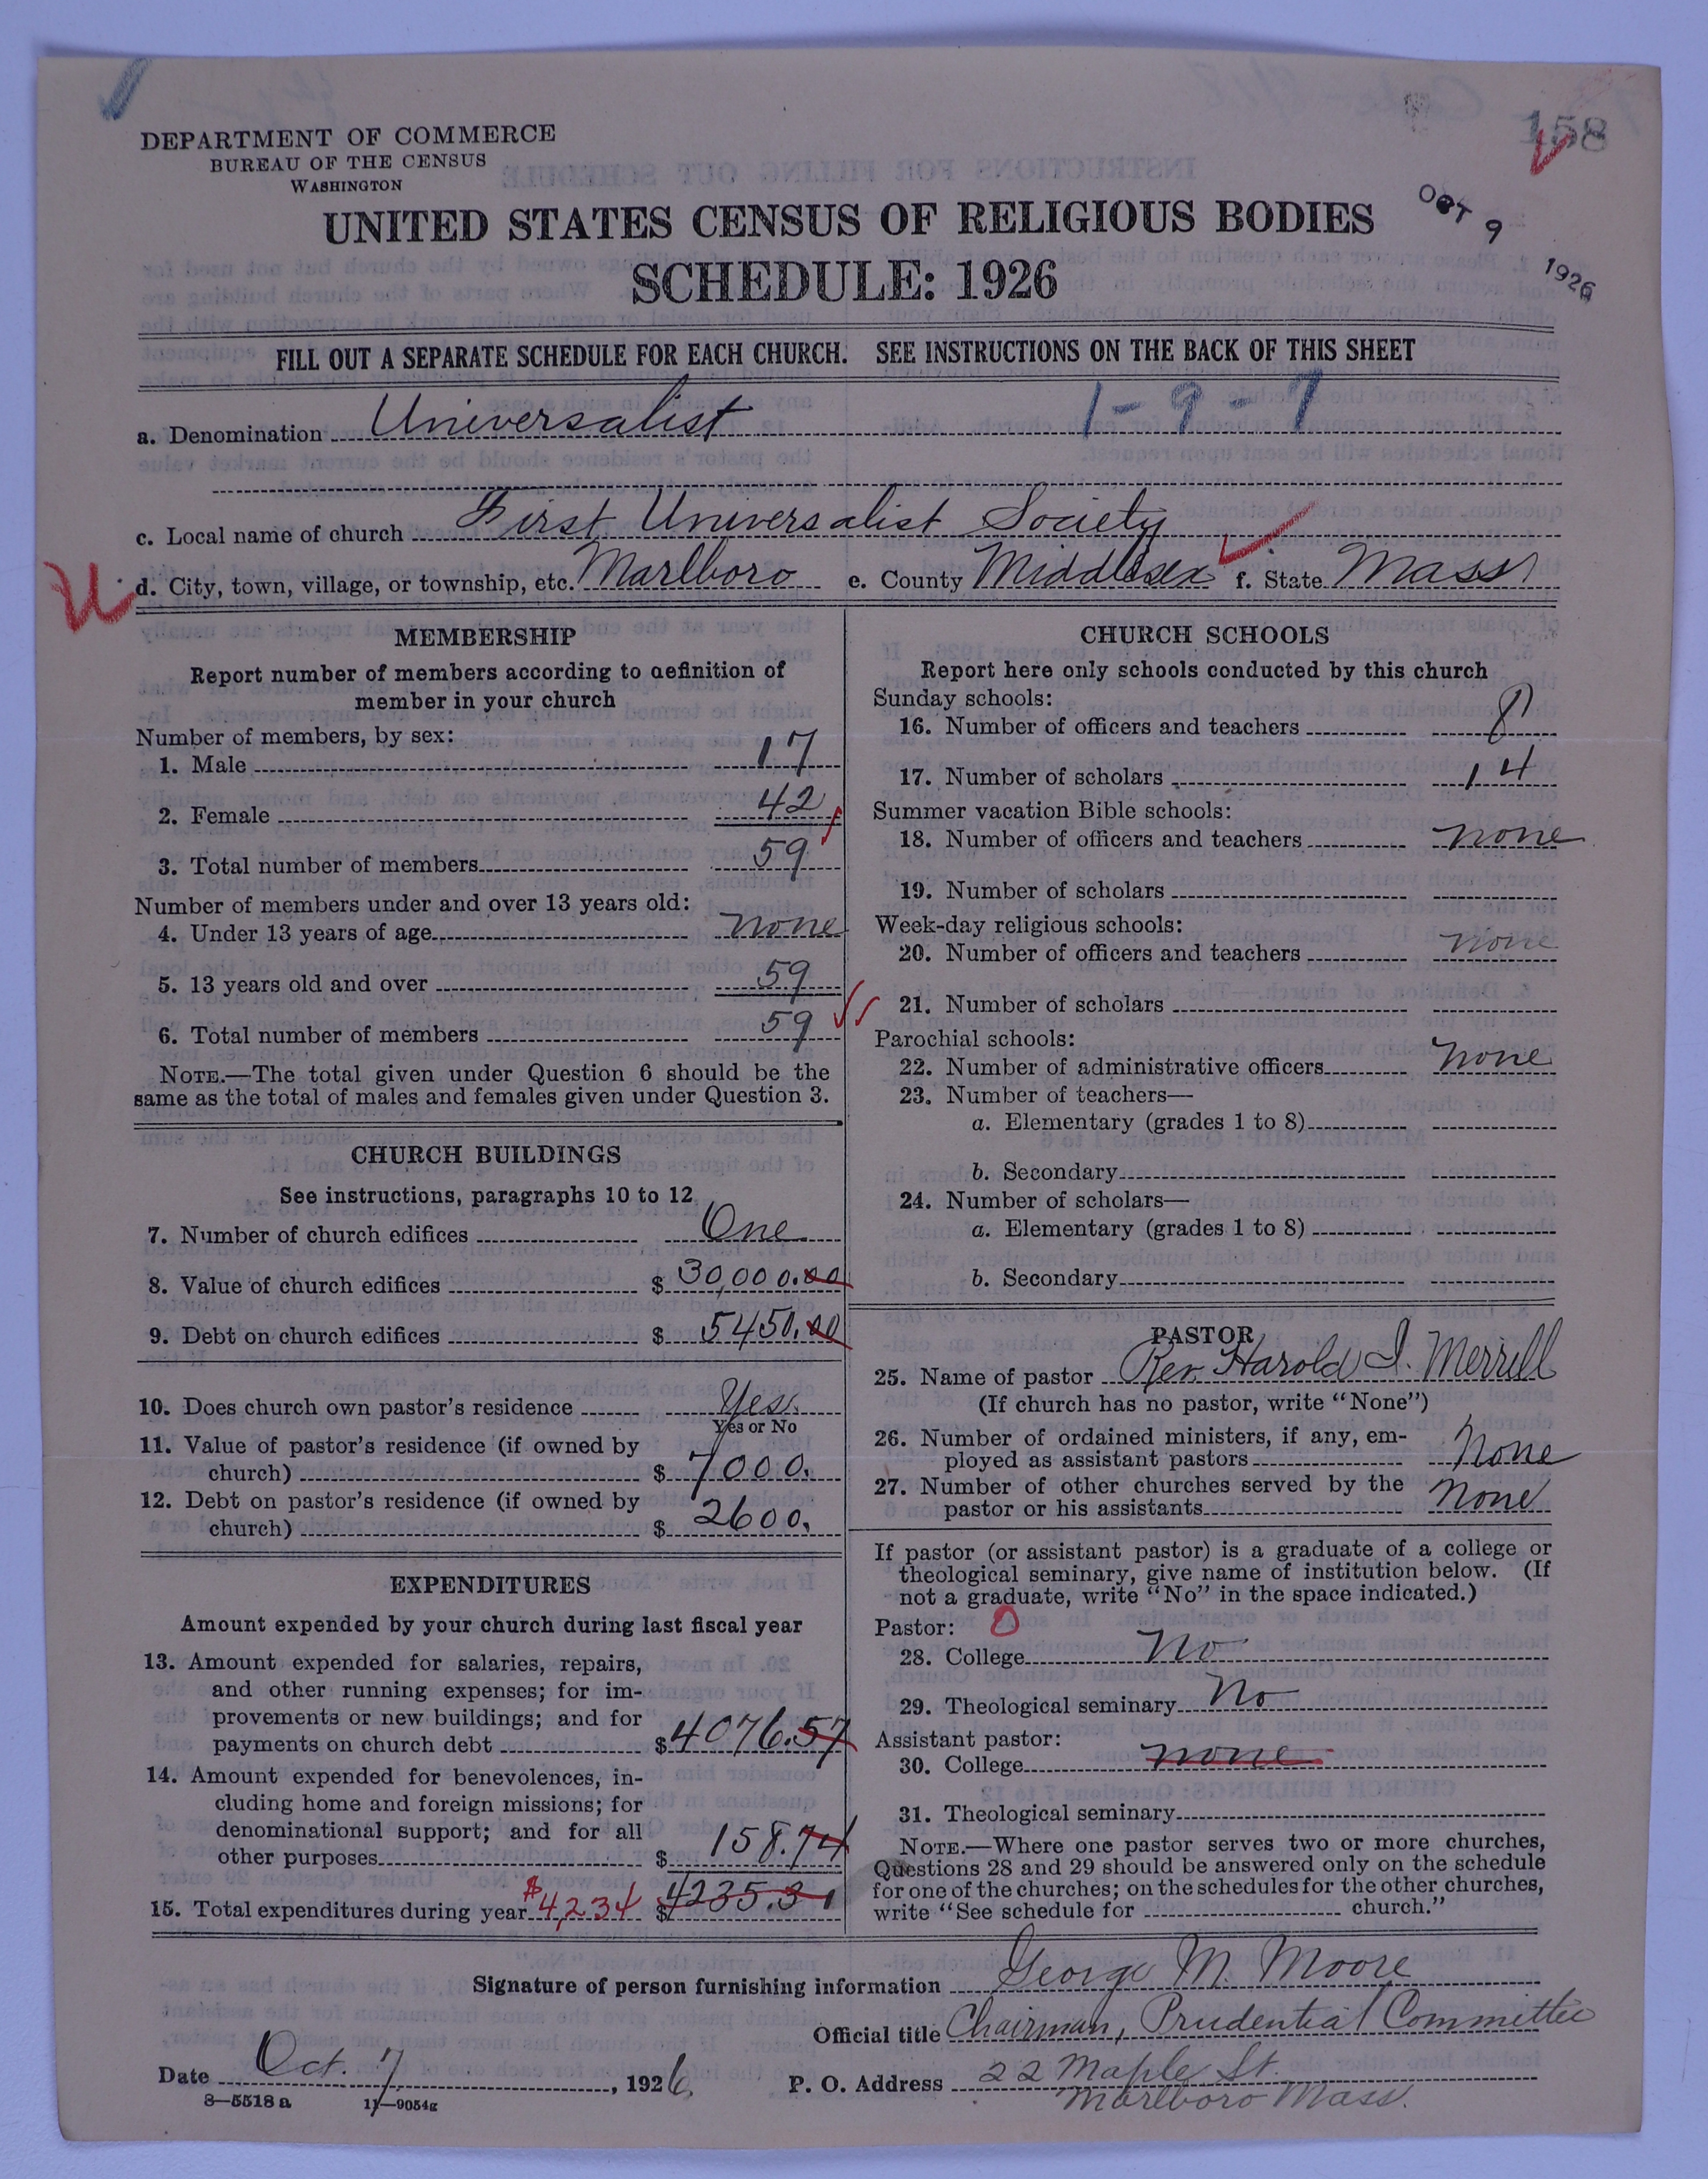 158
DEPARTMENT OF COMMERCE
BUREAU OF THE CENSUS
WASHINGTON
OCT 9 1926
UNITED STATES CENSUS OF RELIGIOUS BODIES
SCHEDULE: 1926
FILL OUT A SEPARATE SCHEDULE FOR EACH CHURCH. SEE INSTRUCTIONS ON THE BACK OF THIS SHEET
1-9-7
a. Denomination Universalist
c. Local name of church First Universalist Society
d. City, town, village, or township, etc. Marlboro e. County Middlesex f. State Mass
MEMBERSHIP
Report number of members according to definition of
member in your church
Number of members, by sex:
1. Male 17
2. Female 42
3. Total number of members 59
Number of members under and over 13 years old:
4. Under 13 years of age none
5. 13 years old and over 59
6. Total number of members 59
NOTE.—The total given under Question 6 should be the
same as the total of males and females given under Question 3.
CHURCH BUILDINGS
See instructions, paragraphs 10 to 12
7. Number of church edifices One
8. Value of church edifices $ 30,000.00
9. Debt on church edifices $ 5450.00
10. Does church own pastor's residence Yes.
Yes or No
11. Value of pastor's residence (if owned by
church) $ 7000.
12. Debt on pastor's residence (if owned by
church) $ 2600.
EXPENDITURES
Amount expended by your church during last fiscal year
13. Amount expended for salaries, repairs,
and other running expenses; for im-
provements or new buildings; and for
payments on church debt $ 4076.57
14. Amount expended for benevolences, in-
cluding home and foreign missions; for
denominational support; and for all
other purposes $ 158.74
15. Total expenditures during year $4,234 $ 4235.31
CHURCH SCHOOLS
Report here only schools conducted by this church
Sunday schools:
16. Number of officers and teachers 8
17. Number of scholars 14
Summer vacation Bible schools:
18. Number of officers and teachers none
19. Number of scholars
Week-day religious schools:
20. Number of officers and teachers none
21. Number of scholars
Parochial schools:
22. Number of administrative officers none
23. Number of teachers—
a. Elementary (grades 1 to 8)
b. Secondary
24. Number of scholars—
a. Elementary (grades 1 to 8)
b. Secondary
PASTOR
25. Name of pastor Rev. Harold I. Merrill
(If church has no pastor, write "None")
26. Number of ordained ministers, if any, em-
ployed as assistant pastors None
27. Number of other churches served by the
pastor or his assistants None
If pastor (or assistant pastor) is a graduate of a college or
theological seminary, give name of institution below. (If
not a graduate, write "No" in the space indicated.)
Pastor: 0
28. College No
29. Theological seminary No
Assistant pastor:
30. College none
31. Theological seminary
NOTE.—Where one pastor serves two or more churches,
Questions 28 and 29 should be answered only on the schedule
for one of the churches; on the schedules for the other churches,
write "See schedule for church."
Signature of person furnishing information George M. Moore
Official title Chairman, Prudential Committee
Date Oct. 7, 1926 P. O. Address 22 Maple St.
Marlboro Mass.
8—5518 a 11—9054g